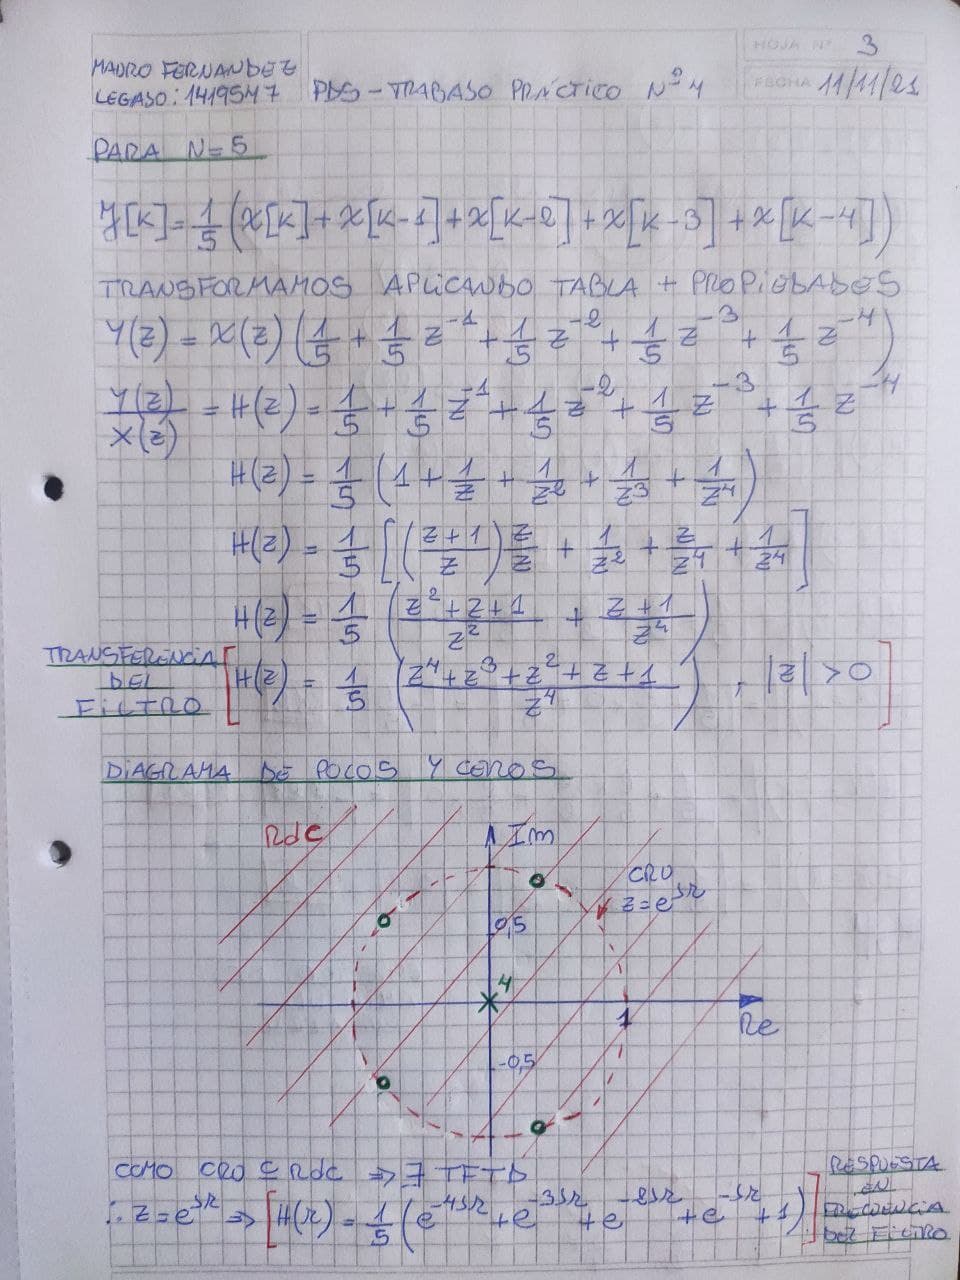 MAURO FERNANDEZ
LEGAJO: 1419547
PDS - TRABAJO PRÁCTICO Nº 4
HOJA Nº 3
FECHA 11/11/21
PARA N=5
y[k] = 1/5 (x[k] + x[k-1] + x[k-2] + x[k-3] + x[k-4])
TRANSFORMAMOS APLICANDO TABLA + PROPIEDADES
Y(z) = X(z) (1/5 + 1/5 z^-1 + 1/5 z^-2 + 1/5 z^-3 + 1/5 z^-4)
Y(z)/X(z) = H(z) = 1/5 + 1/5 z^-1 + 1/5 z^-2 + 1/5 z^-3 + 1/5 z^-4
H(z) = 1/5 (1 + 1/z + 1/z^2 + 1/z^3 + 1/z^4)
H(z) = 1/5 [((z+1)/z) z/z + 1/z^2 + z/z^4 + 1/z^4]
H(z) = 1/5 ((z^2+z+1)/z^2 + (z+1)/z^4)
TRANSFERENCIA
DEL
FILTRO
[H(z) = 1/5 ((z^4+z^3+z^2+z+1)/z^4) , |z| > 0]
DIAGRAMA DE POLOS Y CEROS
RdC
Im
CRU
z=e^jΩ
0,5
4
1
Re
-0,5
COMO CRU ⊆ RdC ⇒ ∃ TFTD
∴ z = e^jΩ ⇒ [H(Ω) = 1/5 (e^-4jΩ + e^-3jΩ + e^-2jΩ + e^-jΩ + 1)]
RESPUESTA
EN
FRECUENCIA
DEL FILTRO